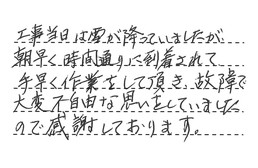 工事当日は雪が降っていましたが
朝早く時間通りに到着されて
手早く作業をして頂き、故障で
大変不自由な思いをしていました
ので感謝しております。